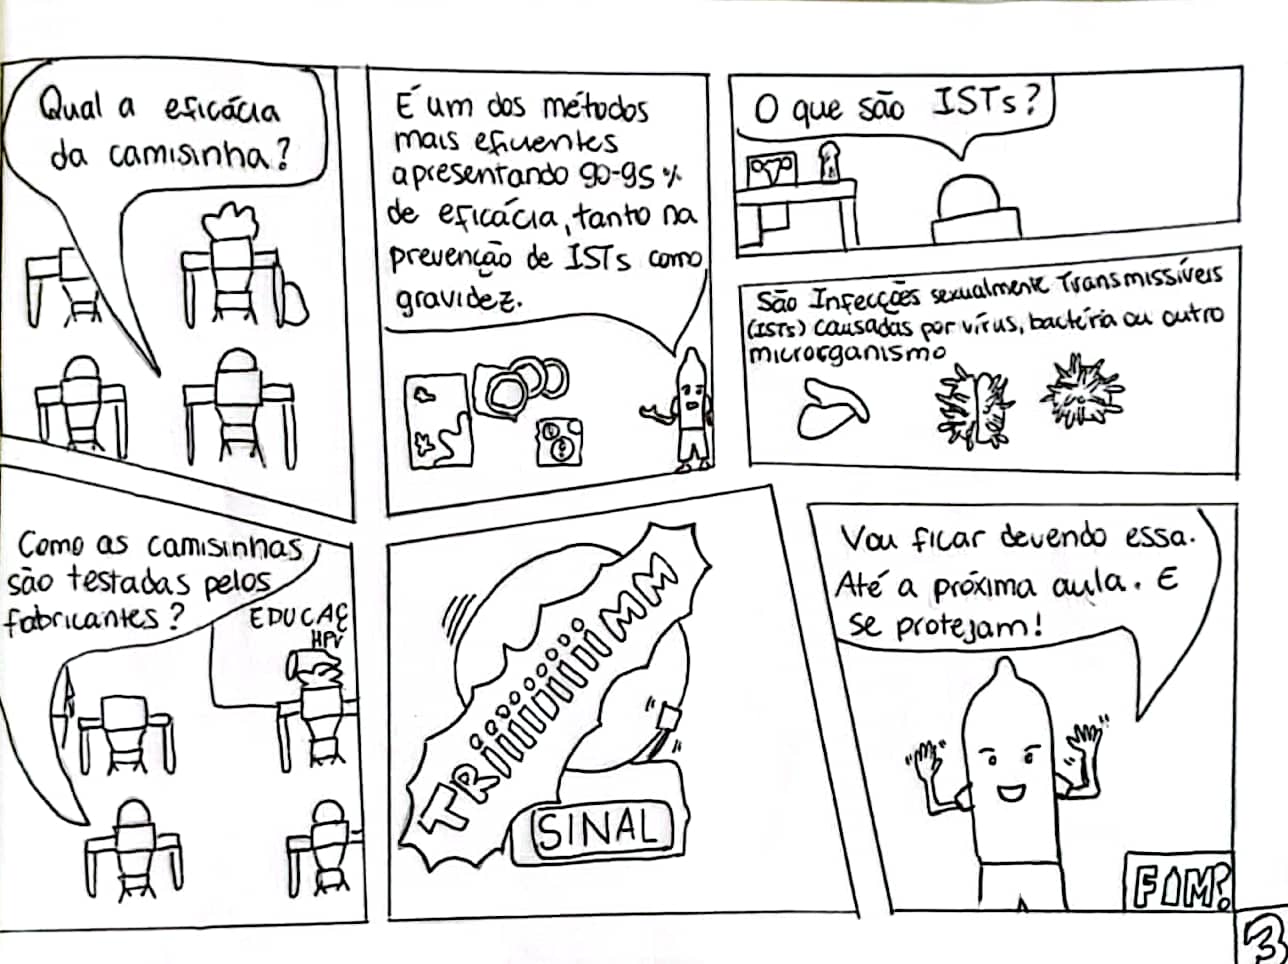 Qual a eficácia
da camisinha?
É um dos métodos
mais eficientes
apresentando 90-95%
de eficácia, tanto na
prevenção de ISTs como
gravidez.
O que são ISTs?
São Infecções sexualmente Transmissíveis
(ISTs) causadas por vírus, bactéria ou outro
microrganismo
Como as camisinhas
são testadas pelos
fabricantes?
EDUCAÇ
HPV
TRiiiiiiiiiiMM
SINAL
Vou ficar devendo essa.
Até a próxima aula. E
se protejam!
FIM?
3